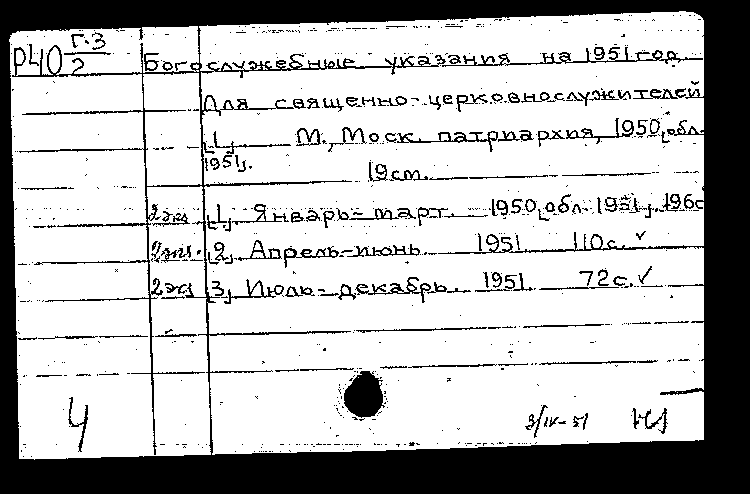 Р40 Г-3/2
Богослужебные указания на 1951 год
Для священно-церковнослужителей
[1] М., Моск. патриархия, 1950 [обл.
1951].
19см.
2экз [1]. Январь-март. 1950 [обл. 1951]. 196с
2экз. [2]. Апрель-июнь 1951 110с. ✓
2экз [3] Июль-декабрь. 1951 72с. ✓
4 3/IV-51